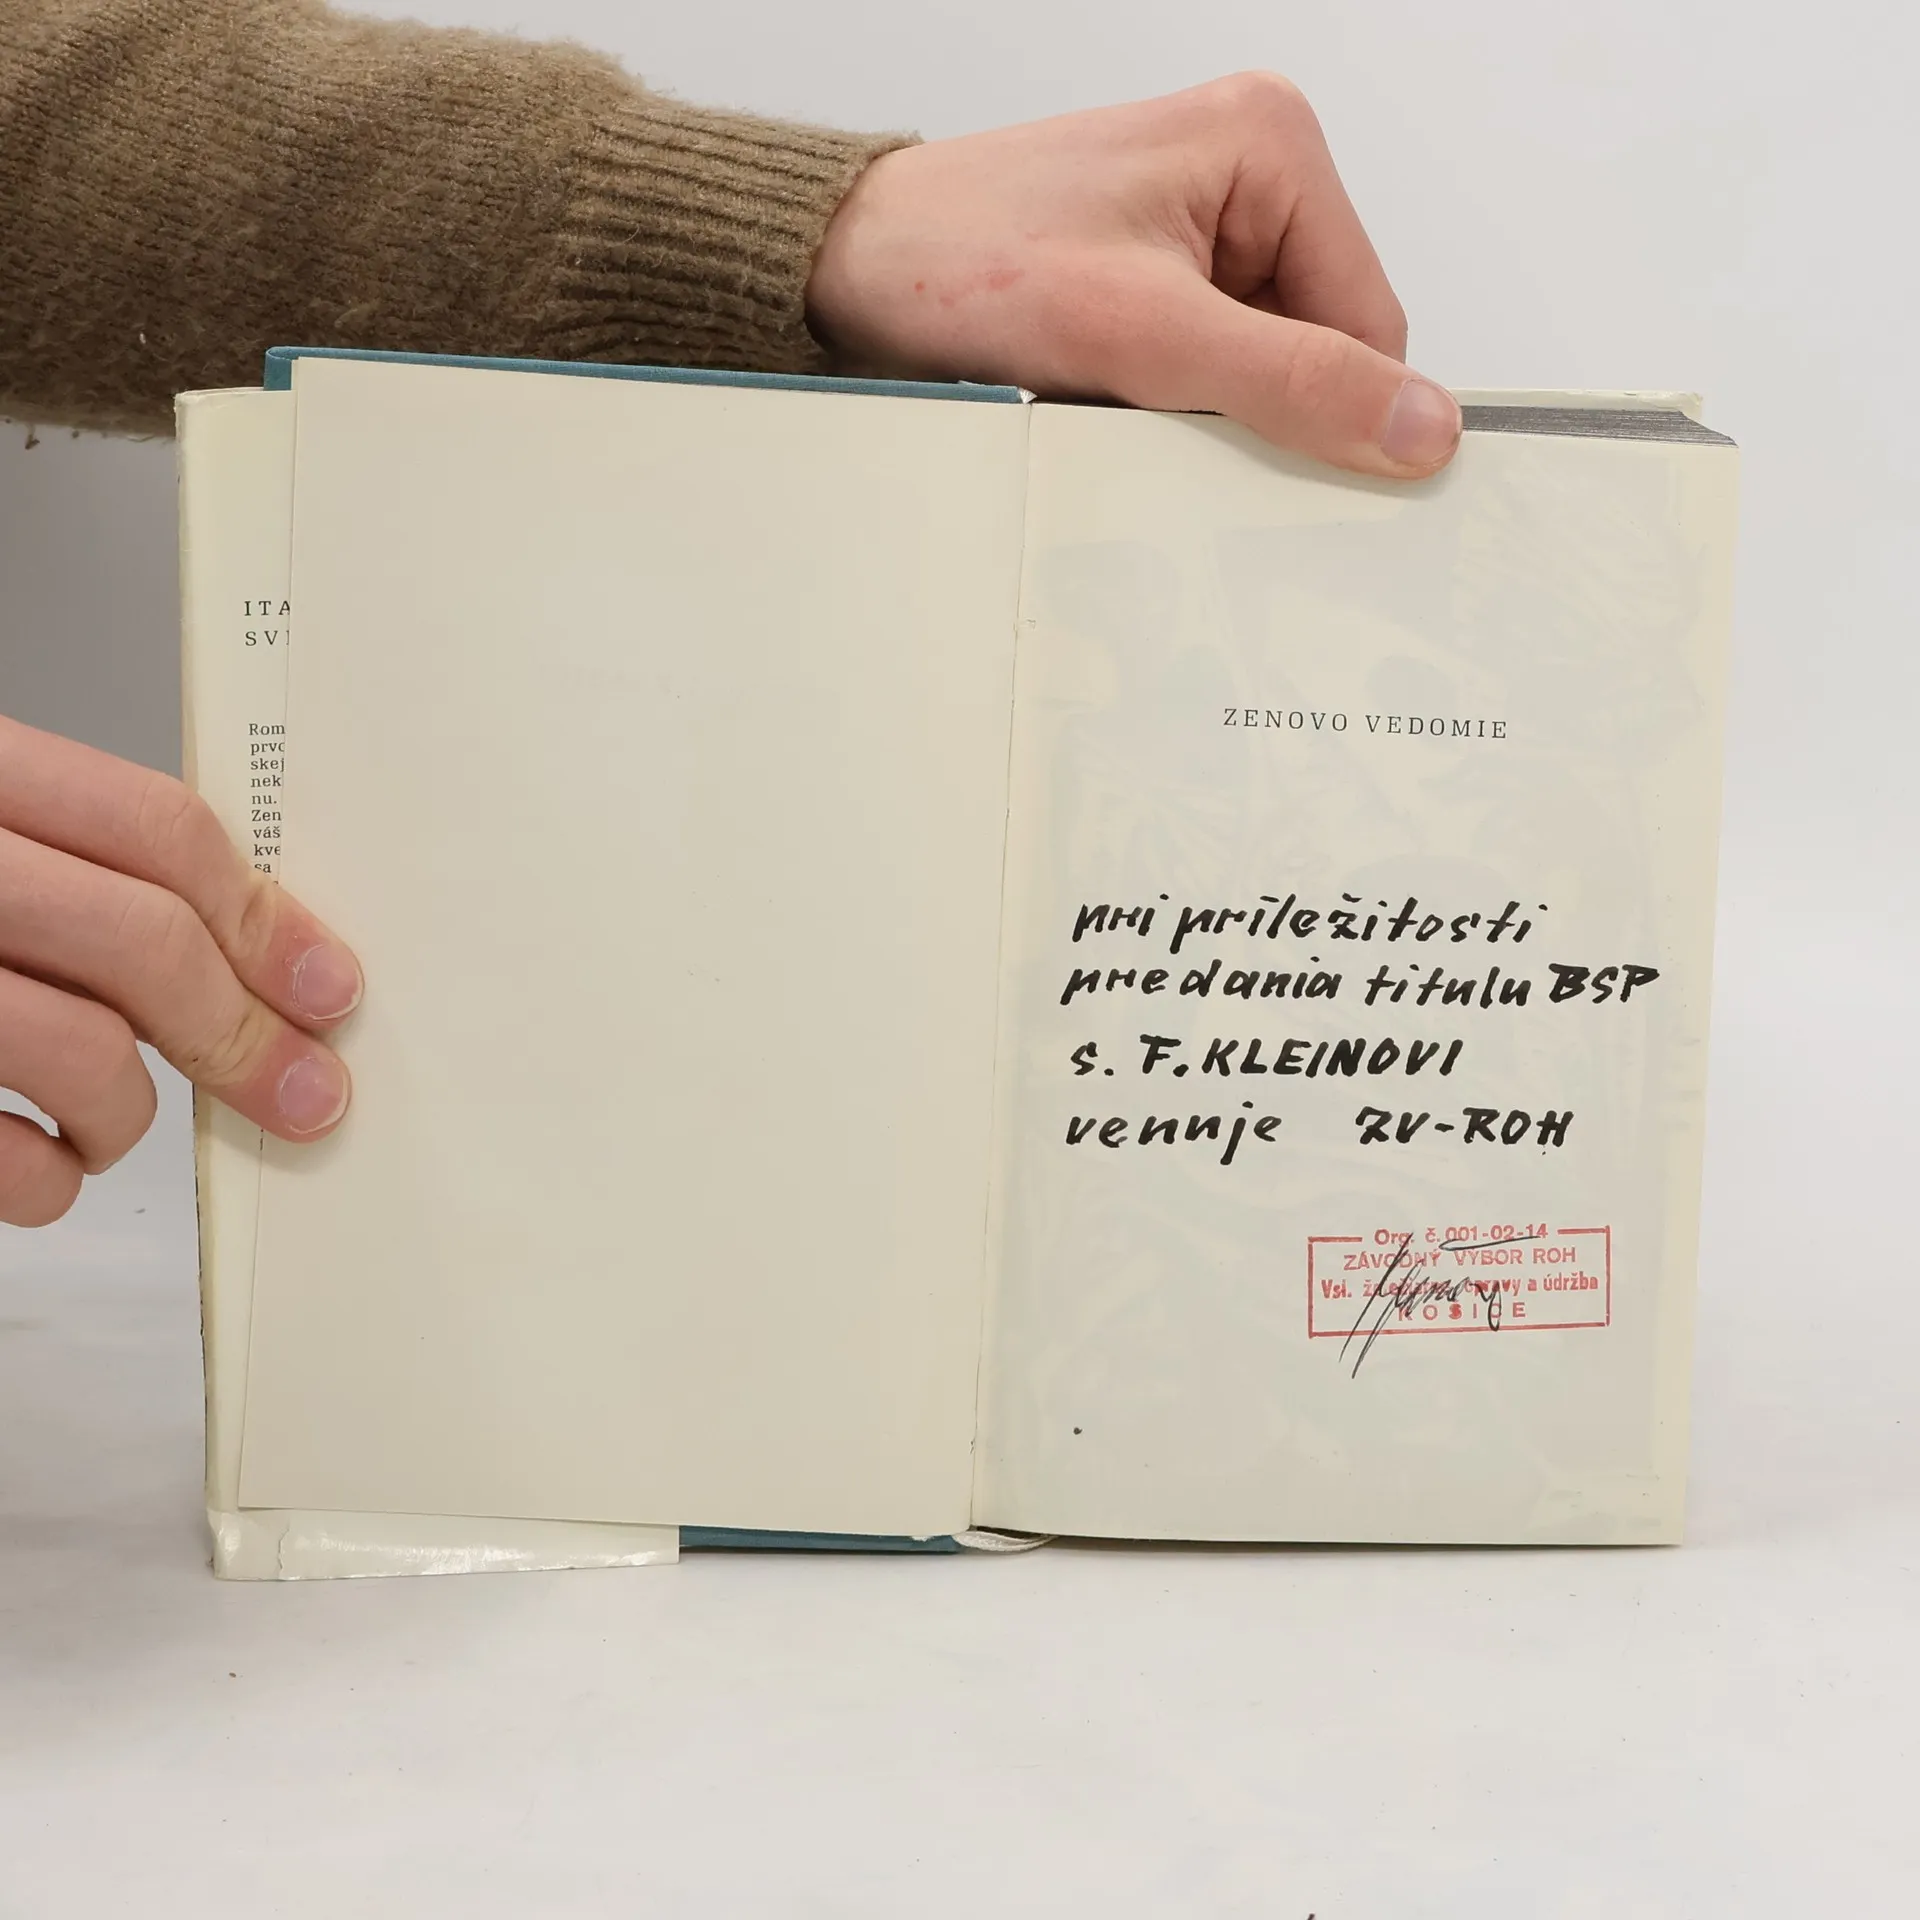 ITA
SV
Rom
prvo
skej
nek
nu.
Zen
váš
kve
sa
ZENOVO VEDOMIE
pri príležitosti
predania titulu BSP
s. F. KLEINOVI
venuje ZV-ROH
Org. č. 001-02-14
ZÁVODNÝ VÝBOR ROH
Vsl. opravy a údržba
KOŠICE